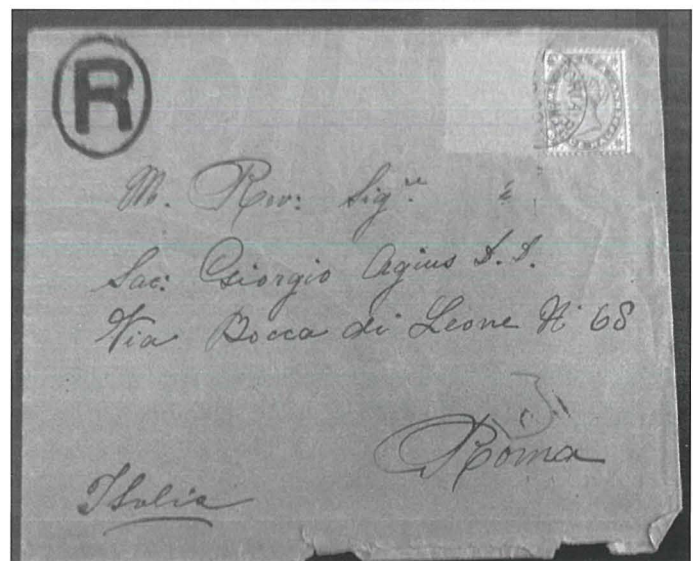 R
M. Rev: Sig.re
Sac: Giorgio Agius D.D.
Via Bocca di Leone No 68
Roma
Italia